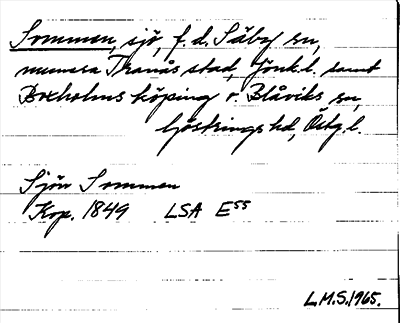 Sommen, sjö, f.d. Säby sn,
numera Tranås stad, Jönk.l. samt
Boxholms köping o. Blåviks sn,
Göstrings hd, Östg.l.
Sjön Sommen
Kop. 1849 LSA E⁵⁵
L.M.S. 1965.